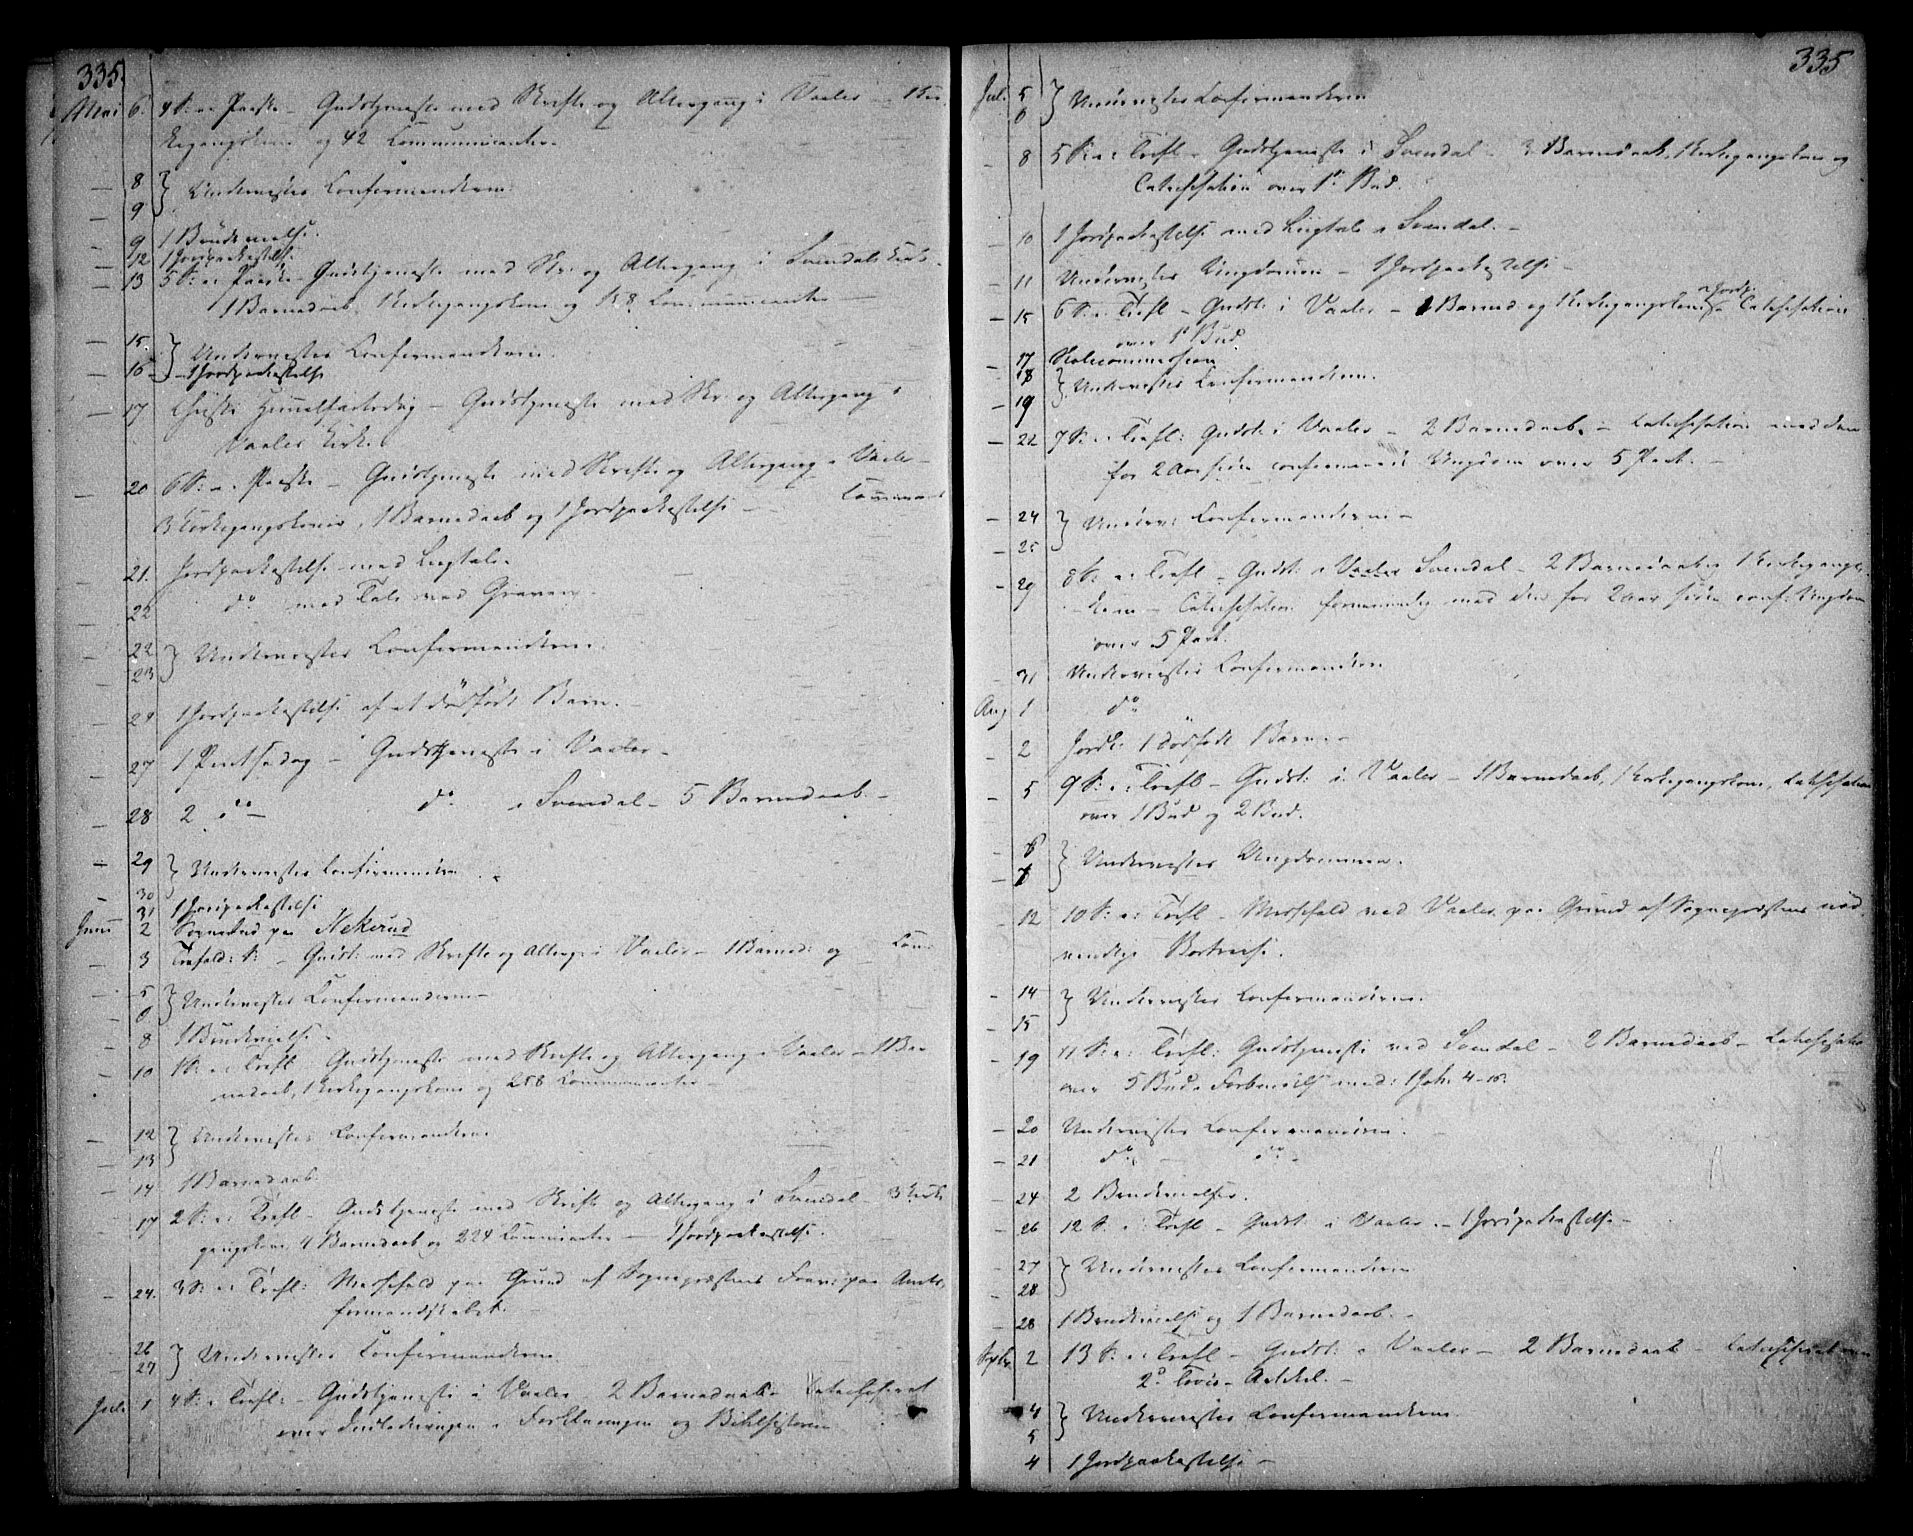 335.
Mai 6. 4 S: e: Paaske – Gudstjeneste med Skrifte og Altergang i Vaaler – 1 Kir-
kegangskone og 42 Communicanter.
– 8 } Underviister Confirmanderne.
– 9
– 9 1 Brudevielse.
– 12 1 Jordpaakastelse
– 13 5 S: e: Paaske – Gudstjeneste med Skr. og Altergang i Svendal Kirke.
1 Barnedaab, 1 Kirkegangskone og 158 Communicanter –
– 15 } Underviister Confirmanderne.
– 16 – 1 Jordpaakastelse
– 17 Christi Himmelfartsdag – Gudstjeneste med Skr. og Altergang i
Vaaler Kirke.
– 20 6 S: e: Paaske – Gudstjeneste med Skrifte og Altergang i Vaaler –
Communic
3 Kirkegangskoner, 1 Barnedaab og 1 Jordpaakastelse –
– 21. Jordpaakastelse med Liigtale.
– 22 do med Tale ved Graven.
– 22 } Underviister Confirmanderne.
– 23
– 24 1 Jordpaakastelse af et dødfødt Barn.
– 27 1 Pintsedag – Gudstjeneste i Vaaler –
– 28 2 do – do i Svendal – 5 Barnedaab –
– 29 } Underviister Confirmanderne.
– 30
– 31 1 Jordpaakastelse
Juni 2 Sognebud paa Nekerud
– 3 Trefold: S: – Gudst: med Skrifte og Alterg: i Vaaler – 1 Barned: og Com:
– 5 } Underviister Confirmanderne –
– 6
– 8 1 Brudevielse.
– 10 1 S: e: Trefl – Gudstjeneste med Skrifte og Altergang i Vaaler – 1 Bar-
nedaab, 1 Kirkegangskone og 258 Communicanter –
– 12 } Underviister Confirmanderne
– 13
– 14 1 Barnedaab.
– 17 2 S: e: Trefl – Gudstjeneste med Skrifte og Altergang i Svendal – 3 Kirke
gangskoner, 4 Barnedaab og 224 Communicanter – 1 Jordpaakastelse.
– 24. 3 S: e: Trefl: Messefald paa Grund af Sognepræstens paa Amts-
formandskabet. –
– 26 } Underviister Confirmanderne
– 27
Jul. 1 4 S: e Trefl: – Gudstjeneste i Vaaler 2 Barnedaab – Catechiseret
over Indledningen i Forklaringen og Bibelhistorien
335
Jul. 5 } Underviister Confirmanderne
6
– 8 5 S: e: Trefl – Gudstjeneste i Svendal – 3 Barnedaab, 1 Kirkegangskone og
Catechisation over 1ste Bud.
– 10 1 Jordpaakastelse med Liigtale i Svendal. –
– 11 Underviister Ungdommen – 1 Jordpaakastelse –
– 15 6 S: e: Trefl – Gudst: i Vaaler – 1 Barned og 1 Kirkegangskone Catechisation
over 1ste Bud
– 17 Skolecommission
– 18 } Underviister Confirmanderne.
– 19
– 22 7 S: e: Trefl: Gudst: i Vaaler – 2 Barnedaab. – Catechisation med den
for 2 Aar siden confirmerede Ungdom over 5 Part. –
– 24 } Underv: Confirmanderne –
– 25
– 29 8 S: e: Trefl – Gudst: i Vaaler Svendal – 2 Barnedaab og 1 Kirkegangs-
kone – Catechisation fornemmelig med den for 2 Aar siden conf: Ungdom
over 5 Part.
– 31 Underviister Confirmanderne
Aug 1 do
– 2 Jordk: 1 dødfødt Barn –
– 5 9 S: e: Trefl – Gudst: i Vaaler – 1 Barnedaab, 1 Kirkegangskone, Catechisation
over 1 Bud og 2 Bud.
– 6 } Underviister Ungdommen.
– 7
– 12 10 S: e: Trefl – Messefald ved Vaaler paa Grund af Sognepræstens nød-
vendige Bortreise.
– 14 } Underviister Confirmanderne.
– 15
– 19 11 S: e: Trefl: Gudstjeneste ved Svendal – 2 Barnedaab – Catechisation
over 5 Bud i Forbindelse med: 1 Joh. 4–16.
– 20 Underviister Confirmanderne.
– 21 do – do –
– 24 2 Brudevielser.
– 26 12 S: e: Trefl – Gudst: i Vaaler. – 1 Jordpaakastelse –
– 27 } Underviister Confirmanderne
– 28
– 28 1 Brudevielse og 1 Barnedaab. –
Sptbr. 2 13 S: e: Trefl – Gudst: i Vaaler – 2 Barnedaab – Catechiseret over
2. Troes-Artikel. –
4 } Underviister Confirmanderne
5
4 1 Jordpaakastelse –